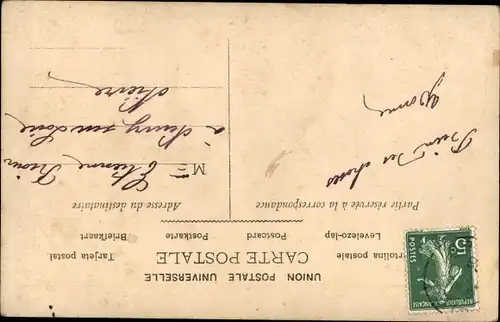 UNION POSTALE UNIVERSELLE
CARTE POSTALE
Tarjeta postal. Briefkaart Postkarte Postcard Levelezo-lap Cartolina postale
Partie réservée à la correspondance
Adresse du destinataire
Bien des choses
Yvonne
M
Etienne
à
sur Loire
Nièvre
5c
POSTES
REPUBLIQUE FRANÇAISE